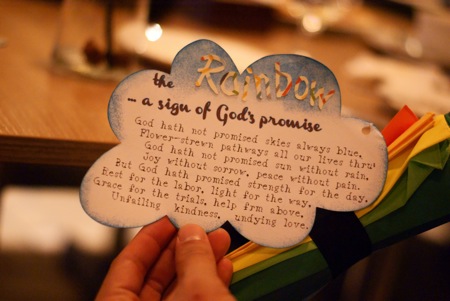 the Rainbow
- a sign of God's promise
God hath not promised skies always blue,
Flower-strewn pathways all our lives thru;
God hath not promised sun without rain,
Joy without sorrow, peace without pain.
But God hath promised strength for the day,
Rest for the labor, light for the way,
Grace for the trials, help frm above,
Unfailing kindness, undying love.